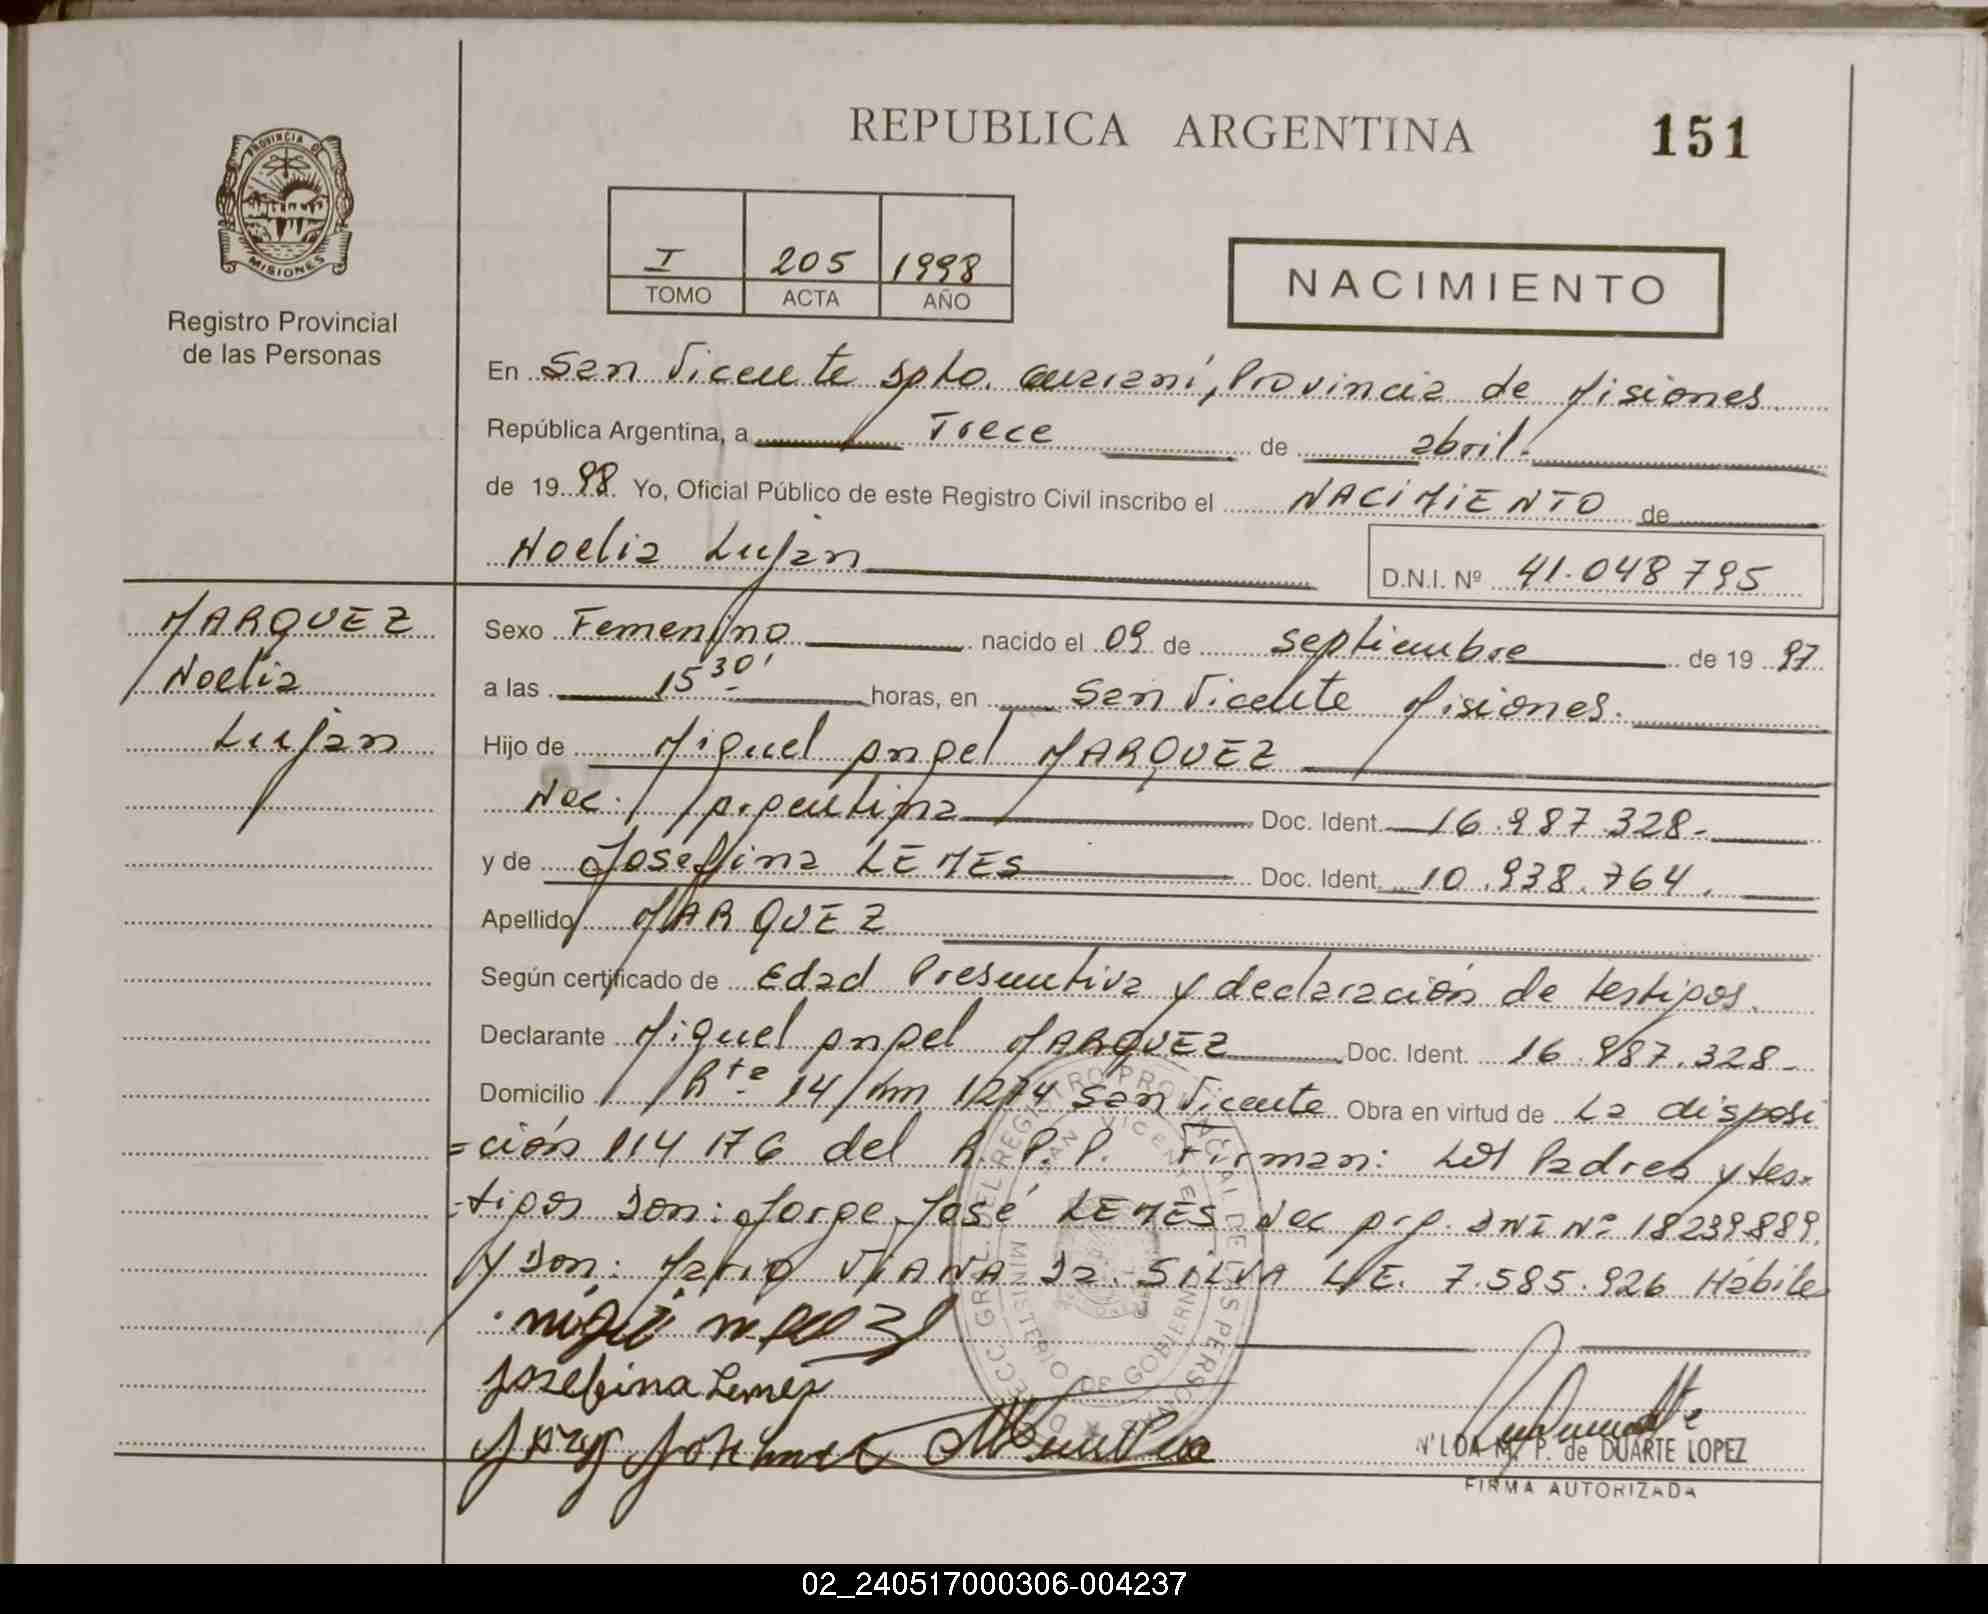 REPUBLICA ARGENTINA
151
PROVINCIA DE
MISIONES
Registro Provincial
de las Personas
I 205 1998
TOMO ACTA AÑO
NACIMIENTO
En San Vicente Dpto. Guaraní, Provincia de Misiones
República Argentina, a Trece de abril.
de 1998 Yo, Oficial Público de este Registro Civil inscribo el NACIMIENTO de
Noelia Luján
D.N.I. Nº 41.048795
MARQUEZ
Noelia
Luján
Sexo Femenino nacido el 09 de septiembre de 1997
a las 15 30' horas, en San Vicente Misiones.
Hijo de Miguel Angel MARQUEZ
Nac. Argentina Doc. Ident. 16.987.328-
y de Josefina LEMES Doc. Ident. 10.938.764.
Apellido MARQUEZ
Según certificado de Edad Presuntiva y declaración de testigos.
Declarante Miguel Angel MARQUEZ Doc. Ident. 16.987.328-
Domicilio Rta. 14 km 1274 San Vicente Obra en virtud de La disposi
=ción 114 176 del R.P.P. Firman: Los Padres y tes=
=tigos Don: Jorge José LEMES Nac Arg. DNI Nº 18239889.
y Don: Mario VIANA Da SILVA L.E. 7.585.926 Hábiles
Josefina Lemes
DIRECC. GRAL. DEL REGISTRO PROVINCIAL DE LAS PERSONAS
SAN VICENTE
MINISTERIO DE GOBIERNO
NILDA M. P. de DUARTE LOPEZ
FIRMA AUTORIZADA
02_240517000306-004237